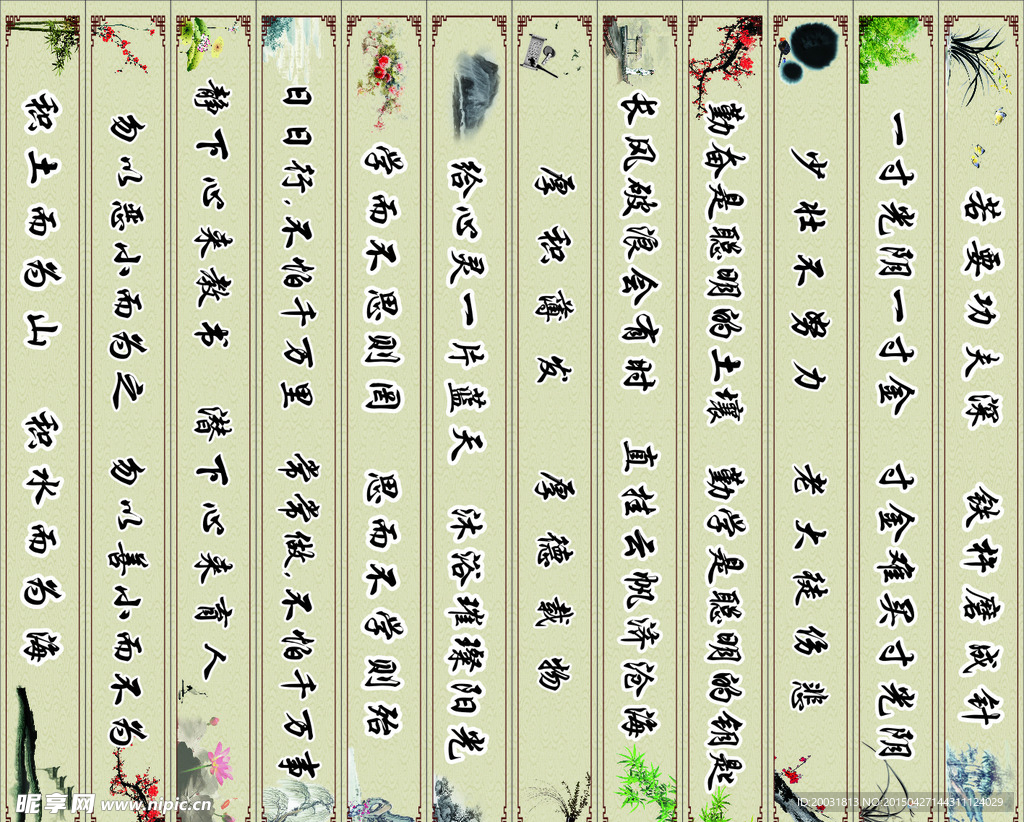 若要功夫深 铁杵磨成针
一寸光阴一寸金 寸金难买寸光阴
少壮不努力 老大徒伤悲
勤奋是聪明的土壤 勤学是聪明的钥匙
长风破浪会有时 直挂云帆济沧海
厚积薄发 厚德载物
给心灵一片蓝天 沐浴璀璨阳光
学而不思则罔 思而不学则殆
日日行,不怕千万里 常常做,不怕千万事
静下心来教书 潜下心来育人
勿以恶小而为之 勿以善小而不为
积土而为山 积水而为海
昵享网 www.nipic.cn
ID:20031813 NO:20150427144311124029